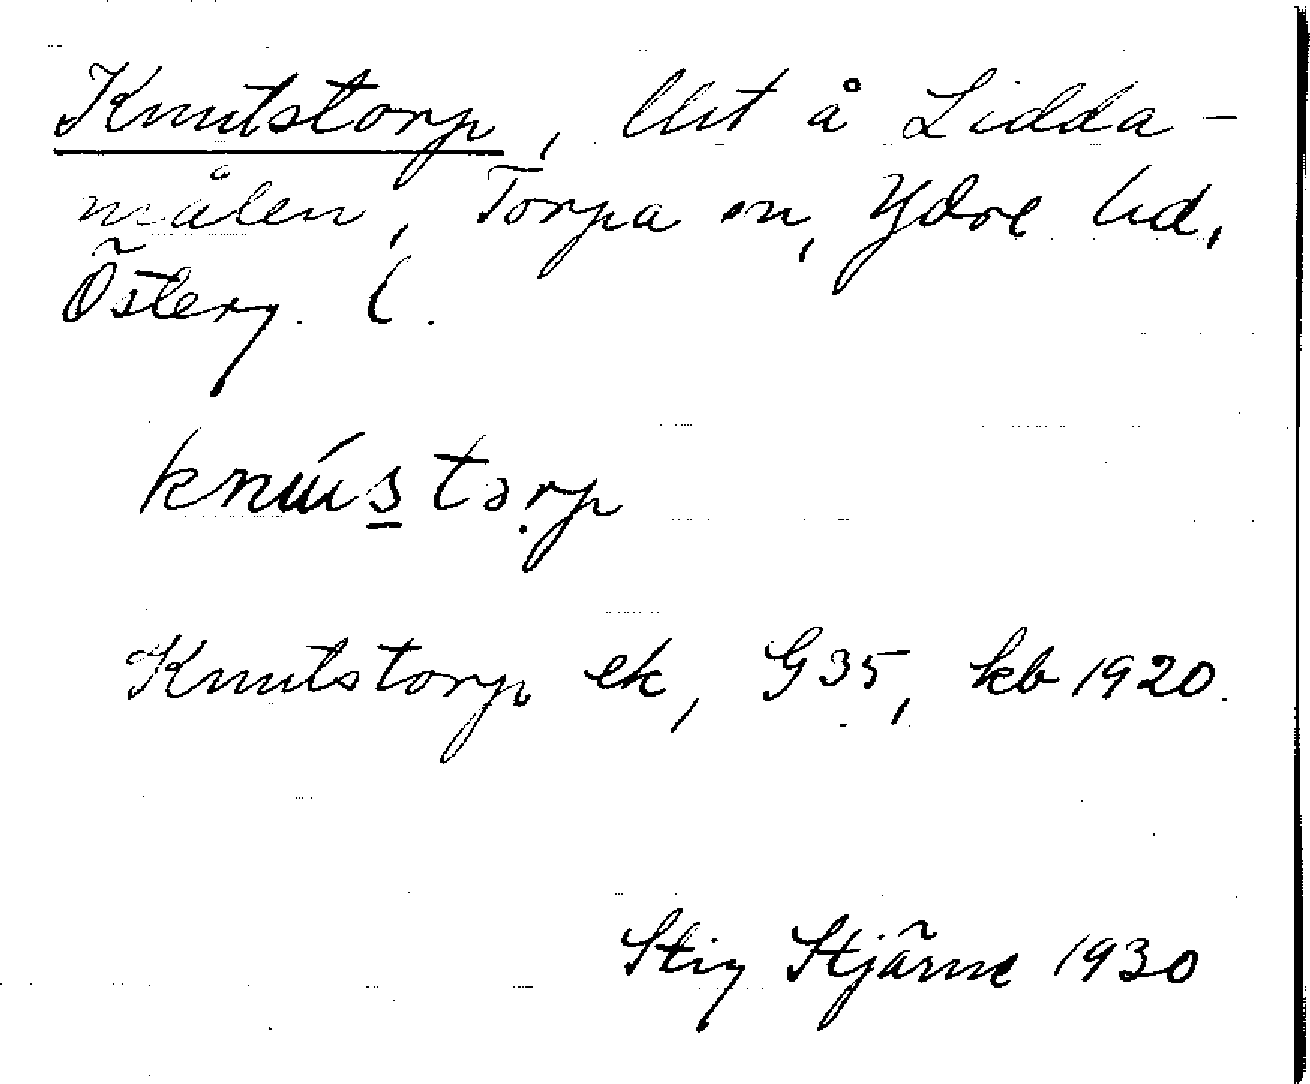 Knutstorp, lht å Lidda-
målen, Torpa sn, Ydre hd,
Österg. l.
knús torp
Knutstorp ek, G35, kb 1920.
Stig Stjärne 1930